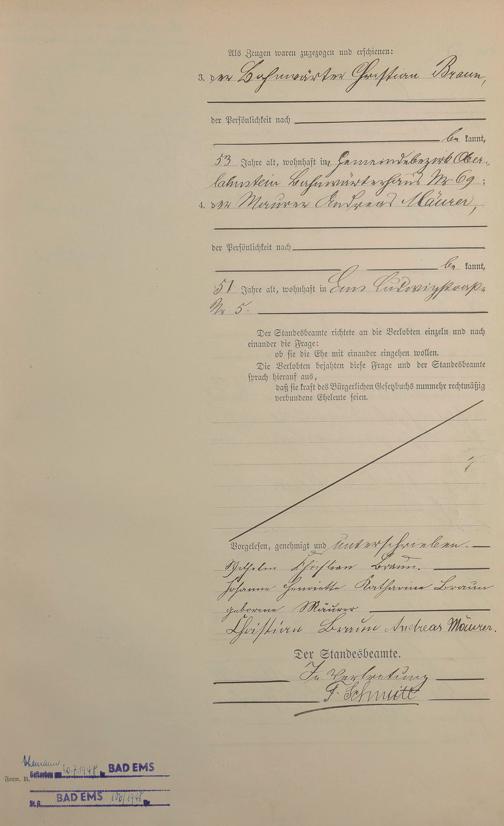 Als Zeugen waren zugezogen und erschienen:
3. der Bahnwärter Christian Braun,
der Persönlichkeit nach
be kannt,
53 Jahre alt, wohnhaft in Gemeindebezirk Ober-
lahnstein Bahnwärterhaus Nr 69;
4. der Maurer Andreas Mäurer,
der Persönlichkeit nach
be kannt,
51 Jahre alt, wohnhaft in Ems Ludwigstraße
Nr 5.
Der Standesbeamte richtete an die Verlobten einzeln und nach
einander die Frage:
ob sie die Ehe mit einander eingehen wollen.
Die Verlobten bejahten diese Frage und der Standesbeamte
sprach hierauf aus,
daß sie kraft des Bürgerlichen Gesetzbuchs nunmehr rechtmäßig
verbundene Eheleute seien.
Vorgelesen, genehmigt und unterschrieben.
Wilhelm Christian Braun.
Johanne Henriette Katharine Braun
geborene Mäurer
Christian Braun Andreas Mäurer.
Der Standesbeamte.
In Vertretung
F. Schmitt
Ehemann
Gestorben am 1948 BAD EMS
Form. B.
St. A. BAD EMS /1948